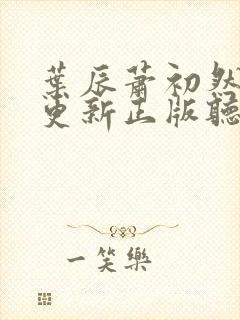 葉辰蕭初然
更新正版聽
一笑樂